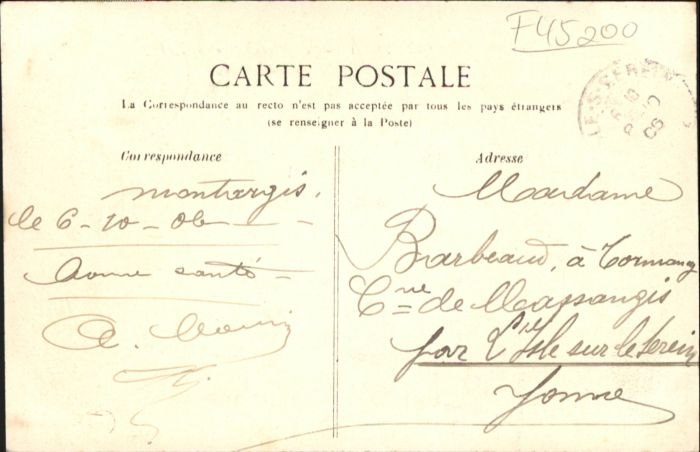 F45200
CARTE POSTALE
La Correspondance au recto n'est pas acceptée par tous les pays étrangers
(se renseigner à la Poste)
Correspondance
Adresse
montargis.
le 6-10-06
bonne santé
A.
Madame
Barbeaud, à Tormancy
Cne de Massangis
par L'Isle sur le Serein
Yonne